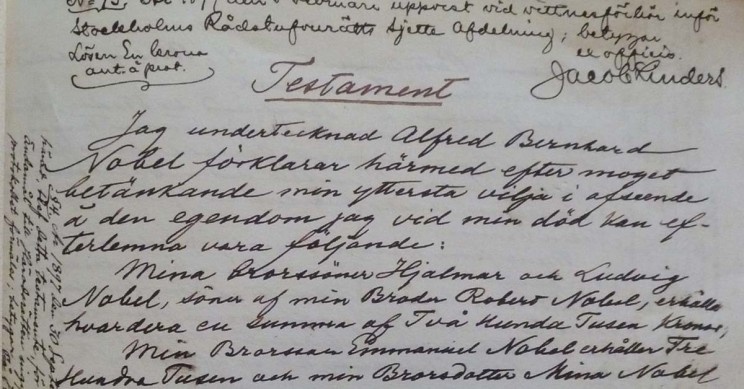 No 73. År 1897 den 5 Februari uppvist vid vittnesförhör inför
Stockholms Rådstufvurätts sjette Afdelning; betygar
Lösen En krona
ant. å prot.
ex officio.
Jacob Linders
Testament
Jag undertecknad Alfred Bernhard
Nobel förklarar härmed efter moget
betänkande min yttersta vilja i afseende
å den egendom jag vid min död kan ef-
terlemna vara följande:
Mina brorssöner Hjalmar och Ludvig
Nobel, söner af min Broder Robert Nobel, erhålla
hvardera en summa af Två Hundra Tusen Kronor,
Min Brorsson Emmanuel Nobel erhåller Tre
Hundra Tusen och min Brorsdotter Mina Nobel